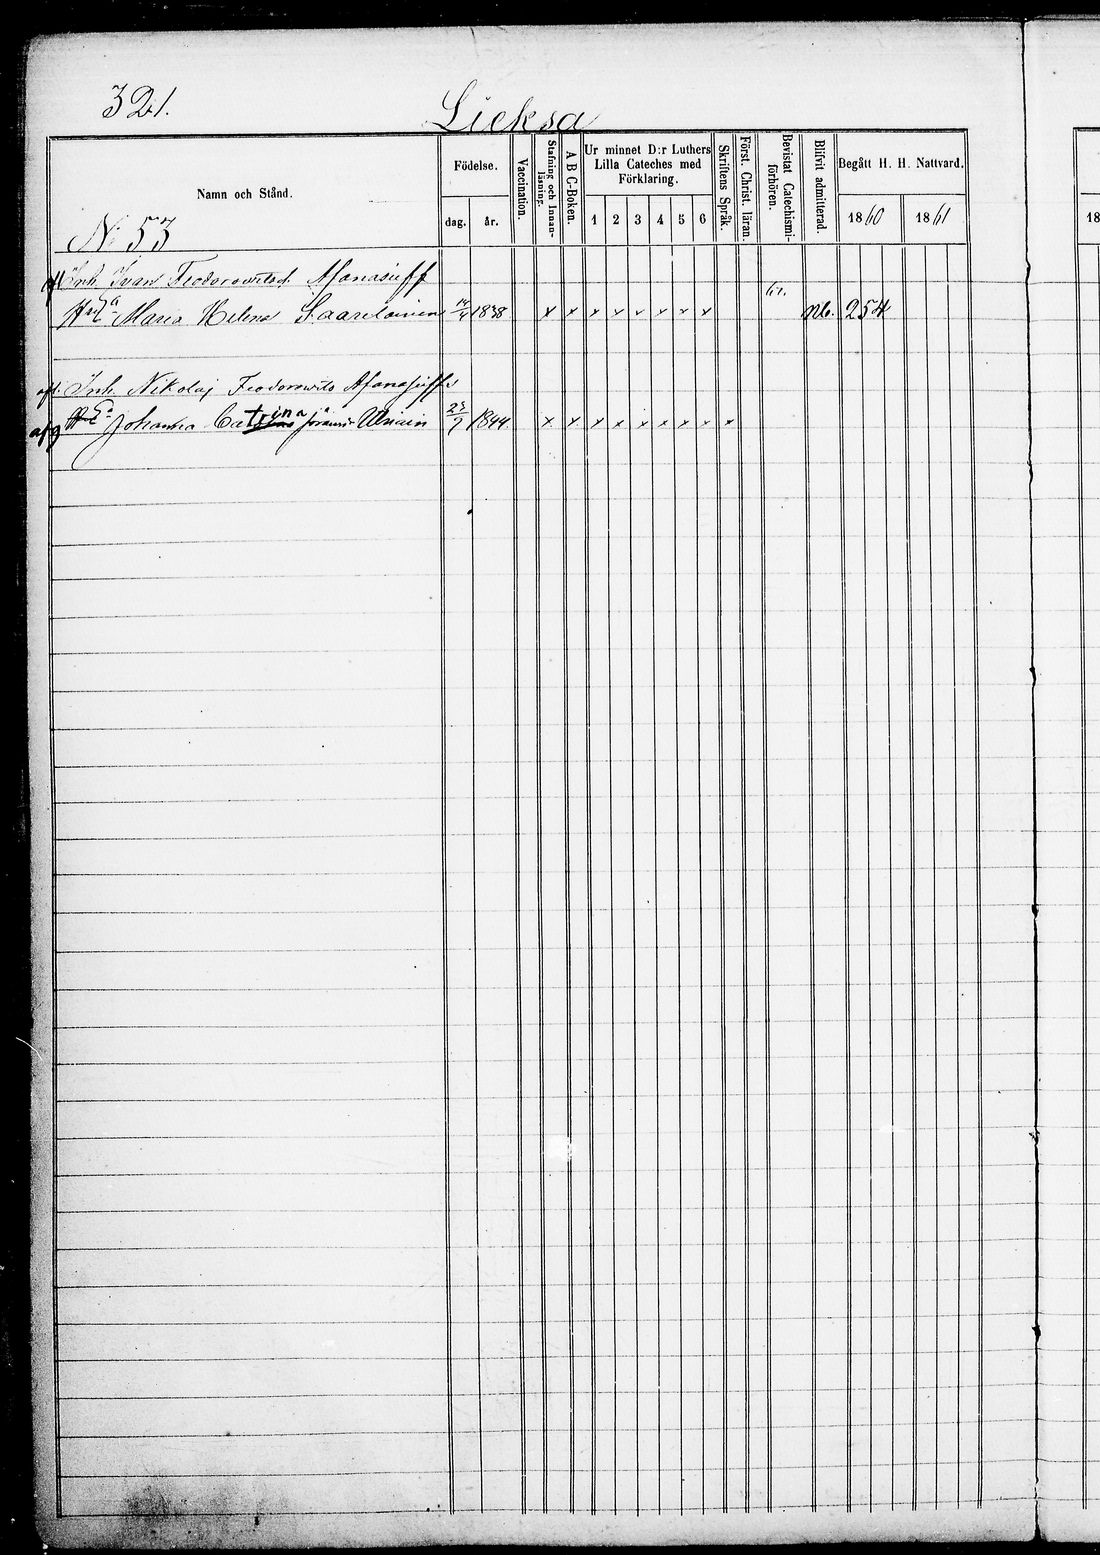 321.
Lieksa
Namn och Stånd.
Födelse.
dag. år.
Vaccination.
Stafning och Innanläsning.
A B C-Boken.
Ur minnet D:r Luthers Lilla Cateches med Förklaring.
1 2 3 4 5 6
Skriftens Språk.
Förstå. Christ. läran.
Bevistat Catechismiförhören.
Blifvit admitterad.
Begått H. H. Nattvard.
1860 1861
18
N 53
Inh. Ivan Feodorowitsch Afanasieff
Maria Helena Saarelainen 1838 x x x x x x x x 254
Inh. Nikolaj Feodorowits Afanasieffs
afg Johanna Catrina 23/9 1844. x x x x x x x x x